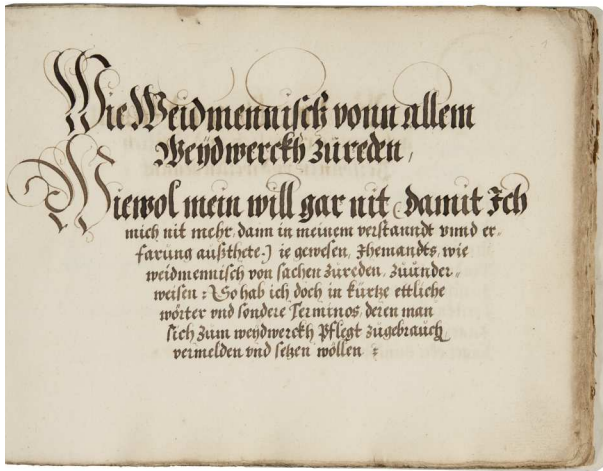 Wie Weidmennisch vonn allem
Weydwerckh zůreden,
Wiewol mein will gar nit (damit Ich
mich nit mehr, dann in meinem verstanndt vnnd er-
farung außthete.) ie gewesen, Jhemandts, wie
weidmennisch von sachen zůreden, zůůnder-
weisen: So hab ich doch in kürtze ettliche
wörter vnd sondere Terminos, deren man
sich zům weydwerckh pflegt zůgebrauch
vermelden vnd setzen wöllen: